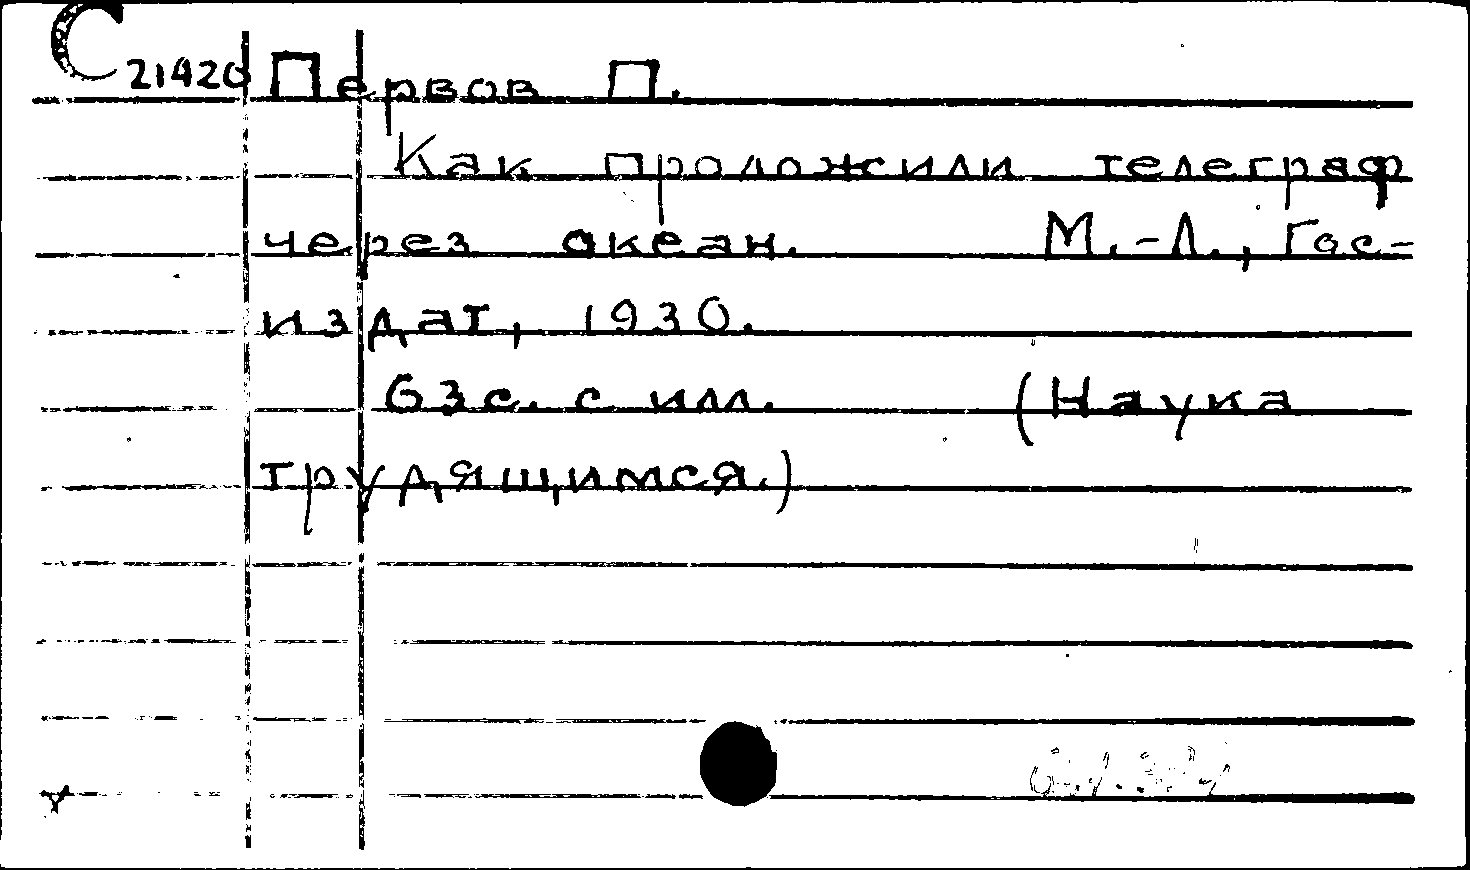 С 21420 Первов П.
Как проложили телеграф
через океан. М.-Л., Гос-
издат, 1930.
63с. с илл. (Наука
трудящимся.)